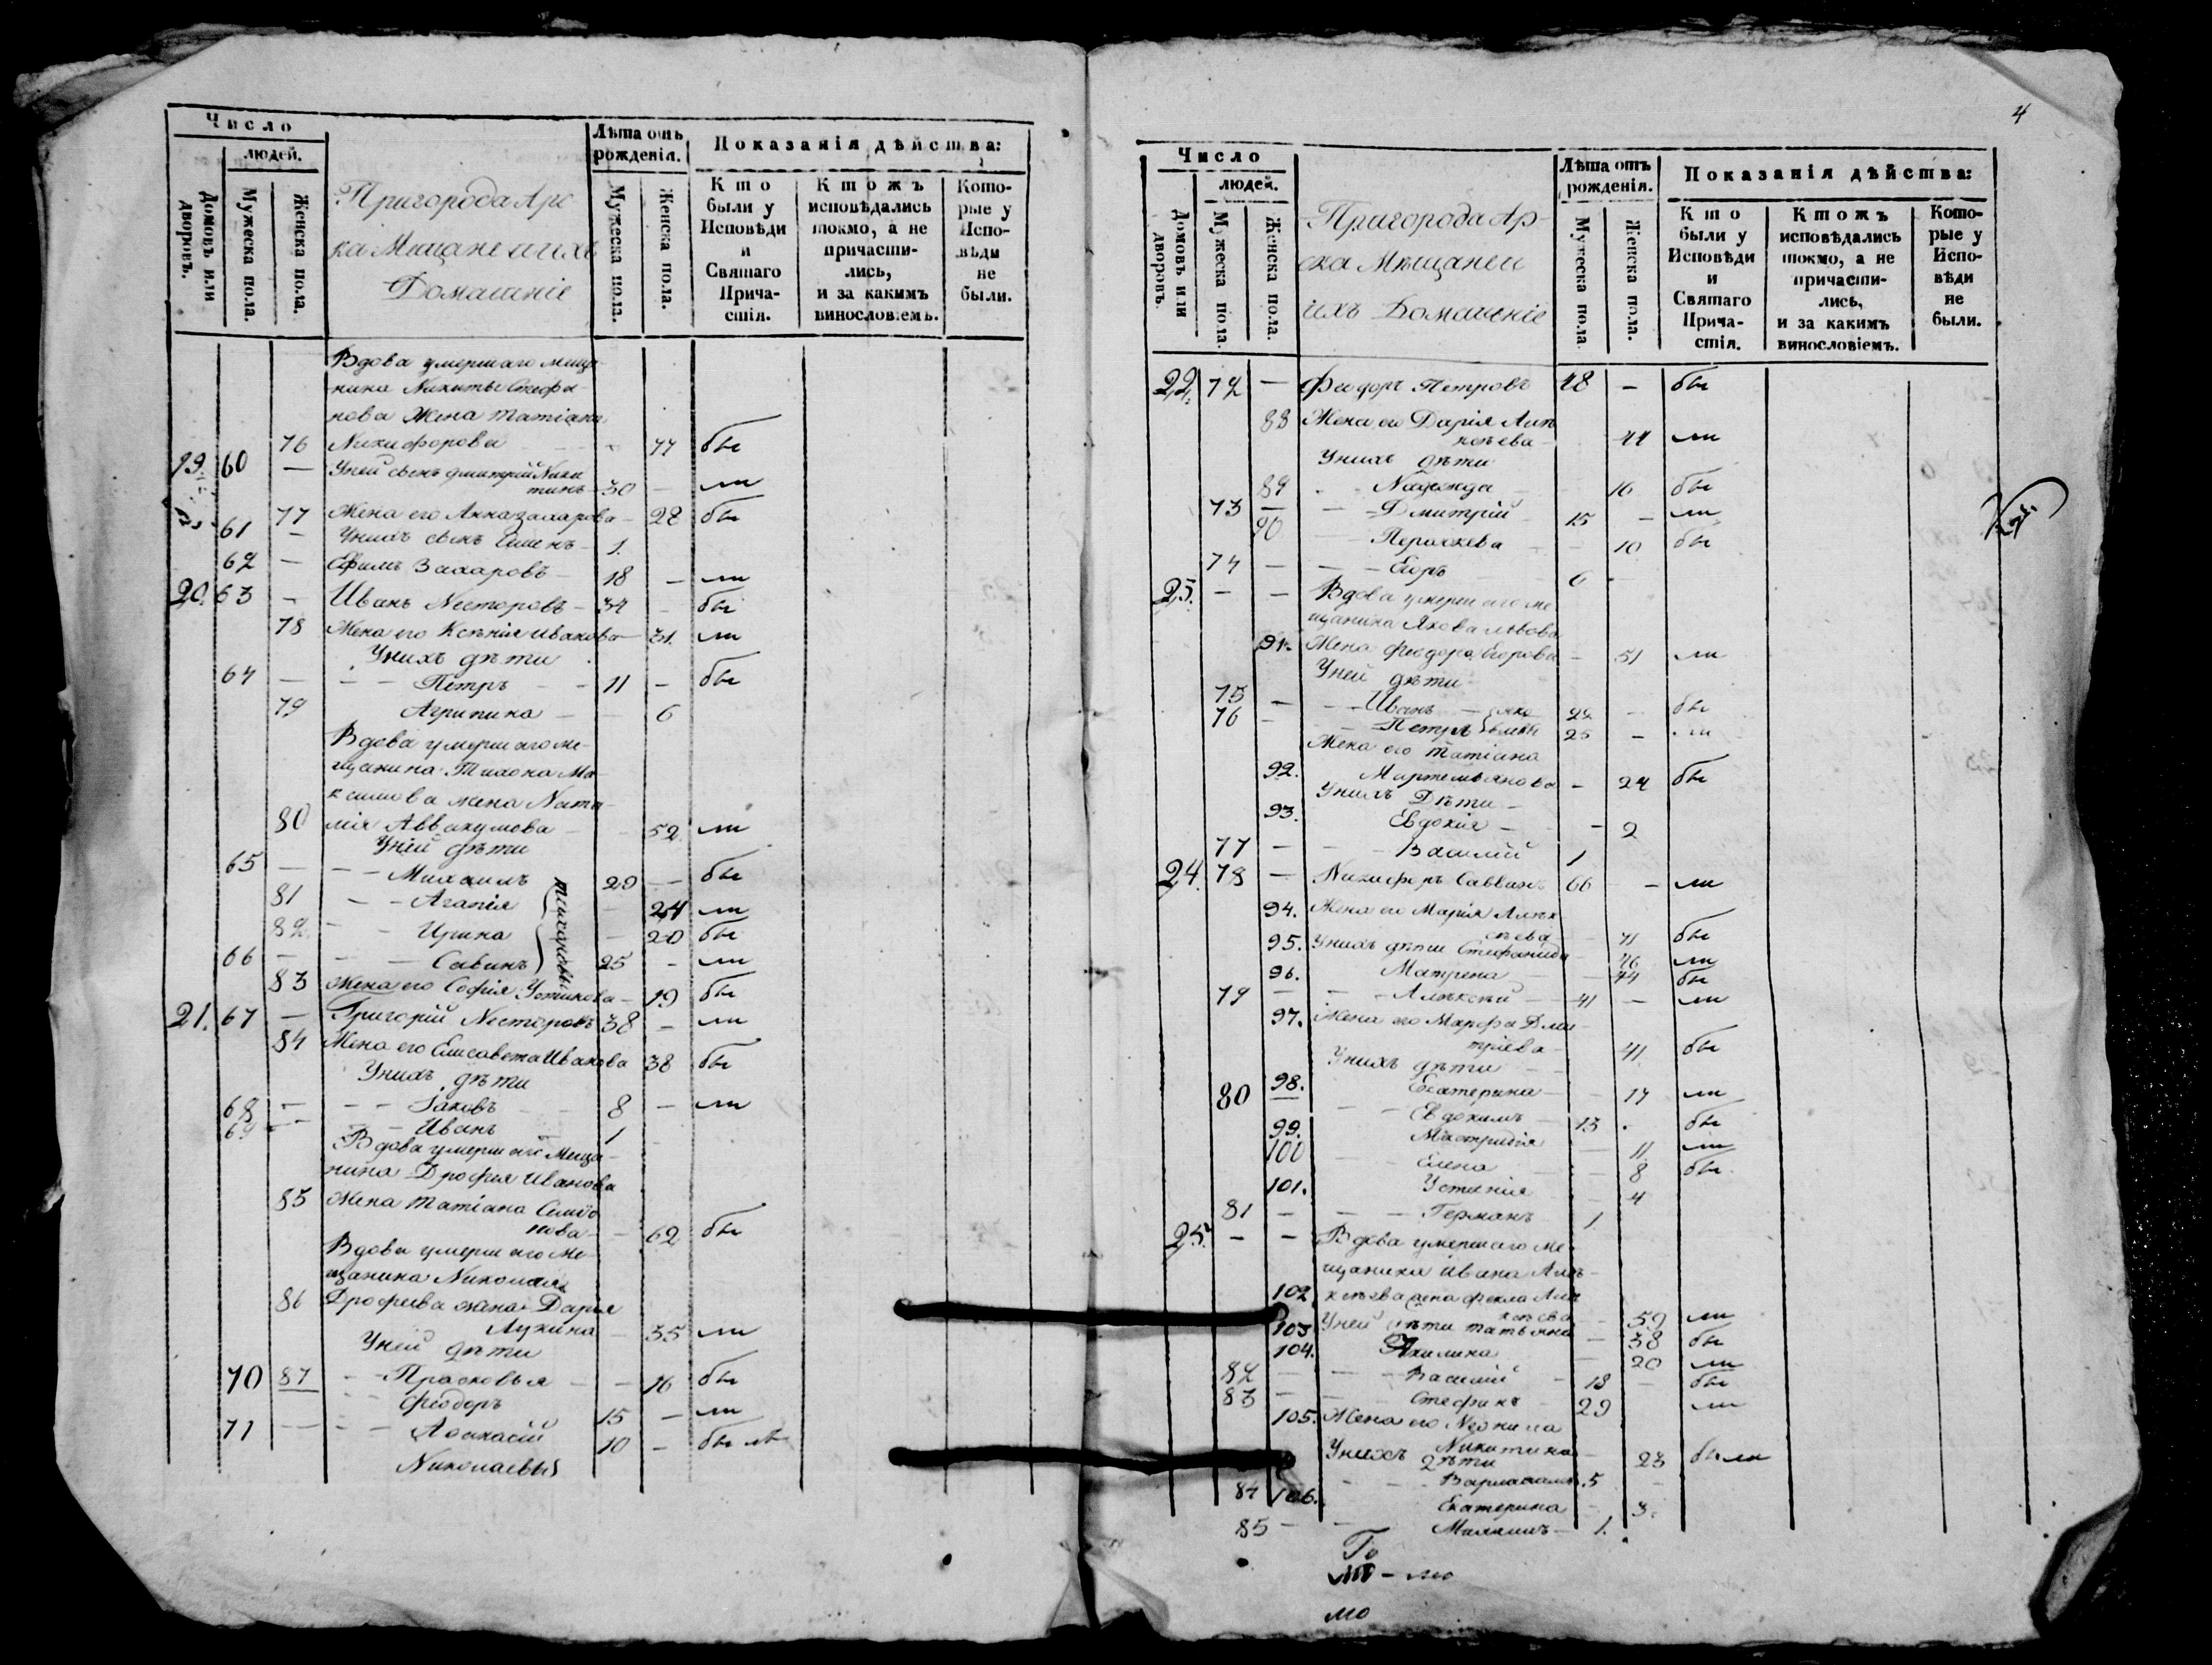 Число
людей.
Домовъ или дворовъ.
Мужеска пола.
Женска пола.
Пригорода Арс
ка Мещане и ихъ
Домашніе
Лѣта отъ рожденія.
Мужеска пола.
Женска пола.
Показанія дѣйства:
Кто были у Исповѣди и Святаго Причастія.
Ктожъ исповѣдались токмо, а не причастились, и за какимъ винословіемъ.
Которые у Исповѣди не были.
Вдова умершаго меща-
нина Никиты Стефа-
нова Жена Татіана
76 Никифорова - 77 бы
19. 60 — Уней сынъ Дмитрій Ники
тинъ - 30 — ли
77 Жена его Анна Захарова - 28 бы
61 — Унихъ сынъ 1.
62 — Ефимъ Захаровъ - 18 — ли
20. 63 — Иванъ Несторовъ - 34 — бы
78 Жена его Ксенія Иванова - 31 ли
Унихъ дѣти
64 — Петръ - 11 — бы
79 Агрипина — 6
Вдова умершаго ме-
щанина Тихона Ма-
ксимова жена Ната
80 лія Аввакумова - 52 ли
Уней дѣти
65 — Михаилъ 29 — бы
81 — Агапія 24 ли
82 — Ирина 20 бы
66 — Савинъ 25 — ли
Тихоновы
83 Жена его Софія Устинова - 19 бы
21. 67 — Григорій Несторовъ 38 — ли
84 Жена его Елисавета Иванова 38 бы
Унихъ дѣти
68 — Іаковъ 8 — ли
69 — Иванъ 1
Вдова умершаго Меща-
нина Дрофия Иванова
85 Жена Татіана Симео
нова - 62 бы
Вдова умершаго Ме-
щанина Николая
86 Дрофиева жена Дарія
Лукина - 35 ли
Уней дѣти
70 87 — Прасковья — 16 бы
Феодоръ 15 — ли
71 — Афанасій 10 — бы ли
Николаевы
4
Число
людей.
Домовъ или дворовъ.
Мужеска пола.
Женска пола.
Пригорода Ар-
ска Мѣщане и
ихъ Домашніе
Лѣта отъ рожденія.
Мужеска пола.
Женска пола.
Показанія дѣйства:
Кто были у Исповѣди и Святаго Причастія.
Ктожъ исповѣдались токмо, а не причастились, и за какимъ винословіемъ.
Которые у Исповѣди не были.
22. 72 — Феодоръ Петровъ 48 — бы
88 Жена его Дарія Алек
сѣева - 44 ли
Унихъ дѣти
89 — Надежда — 16 бы
73 — Дмитрій 15 — ли
90 — Пераскева — 10 бы
74 — Егоръ 6 -
— — Вдова умершаго ме
щанина Якова Львова
91. Жена Феодора Егорова - 51 ли
Уней дѣти
75 — Иванъ — 22 — бы
76 — Петръ 25 — ли
Жена его Татіана
92. Мартемьянова - 24 бы
Унихъ Дѣти -
93. Евдокія - 2
77 — Василій 1
24. 78 — Никифоръ Саввинъ 66 — ли
94. Жена его Марія Алек
сѣева - 71 бы
95. Унихъ дѣти Стефанида - 46 ли
96. Матрена — 44 бы
79 — Алексѣй - 41 — ли
97. Жена его Марфа Дми-
тріева - 41 бы
Унихъ дѣти
98. Екатерина — 17 ли
80 — Евдокимъ - 13 . бы
99. 11 ли
100 Елена — 8 бы
101. Устинія — 4
81 — Германъ 1
25. — — Вдова умершаго ме
щанина Ивана Алек-
102 сѣева жена Фекла Алек
сѣева - 59 ли
103 Уней дѣти Татьяна — 38 бы
104. Акилина 20 ли
82 — Василій - 18 — бы
83 — Стефанъ 29 ли
105. Жена его Неонила
Никитина - 23 были
Унихъ дѣти
84 — Варлаамъ 5 —
106. Екатерина - 3.
85 — 1.